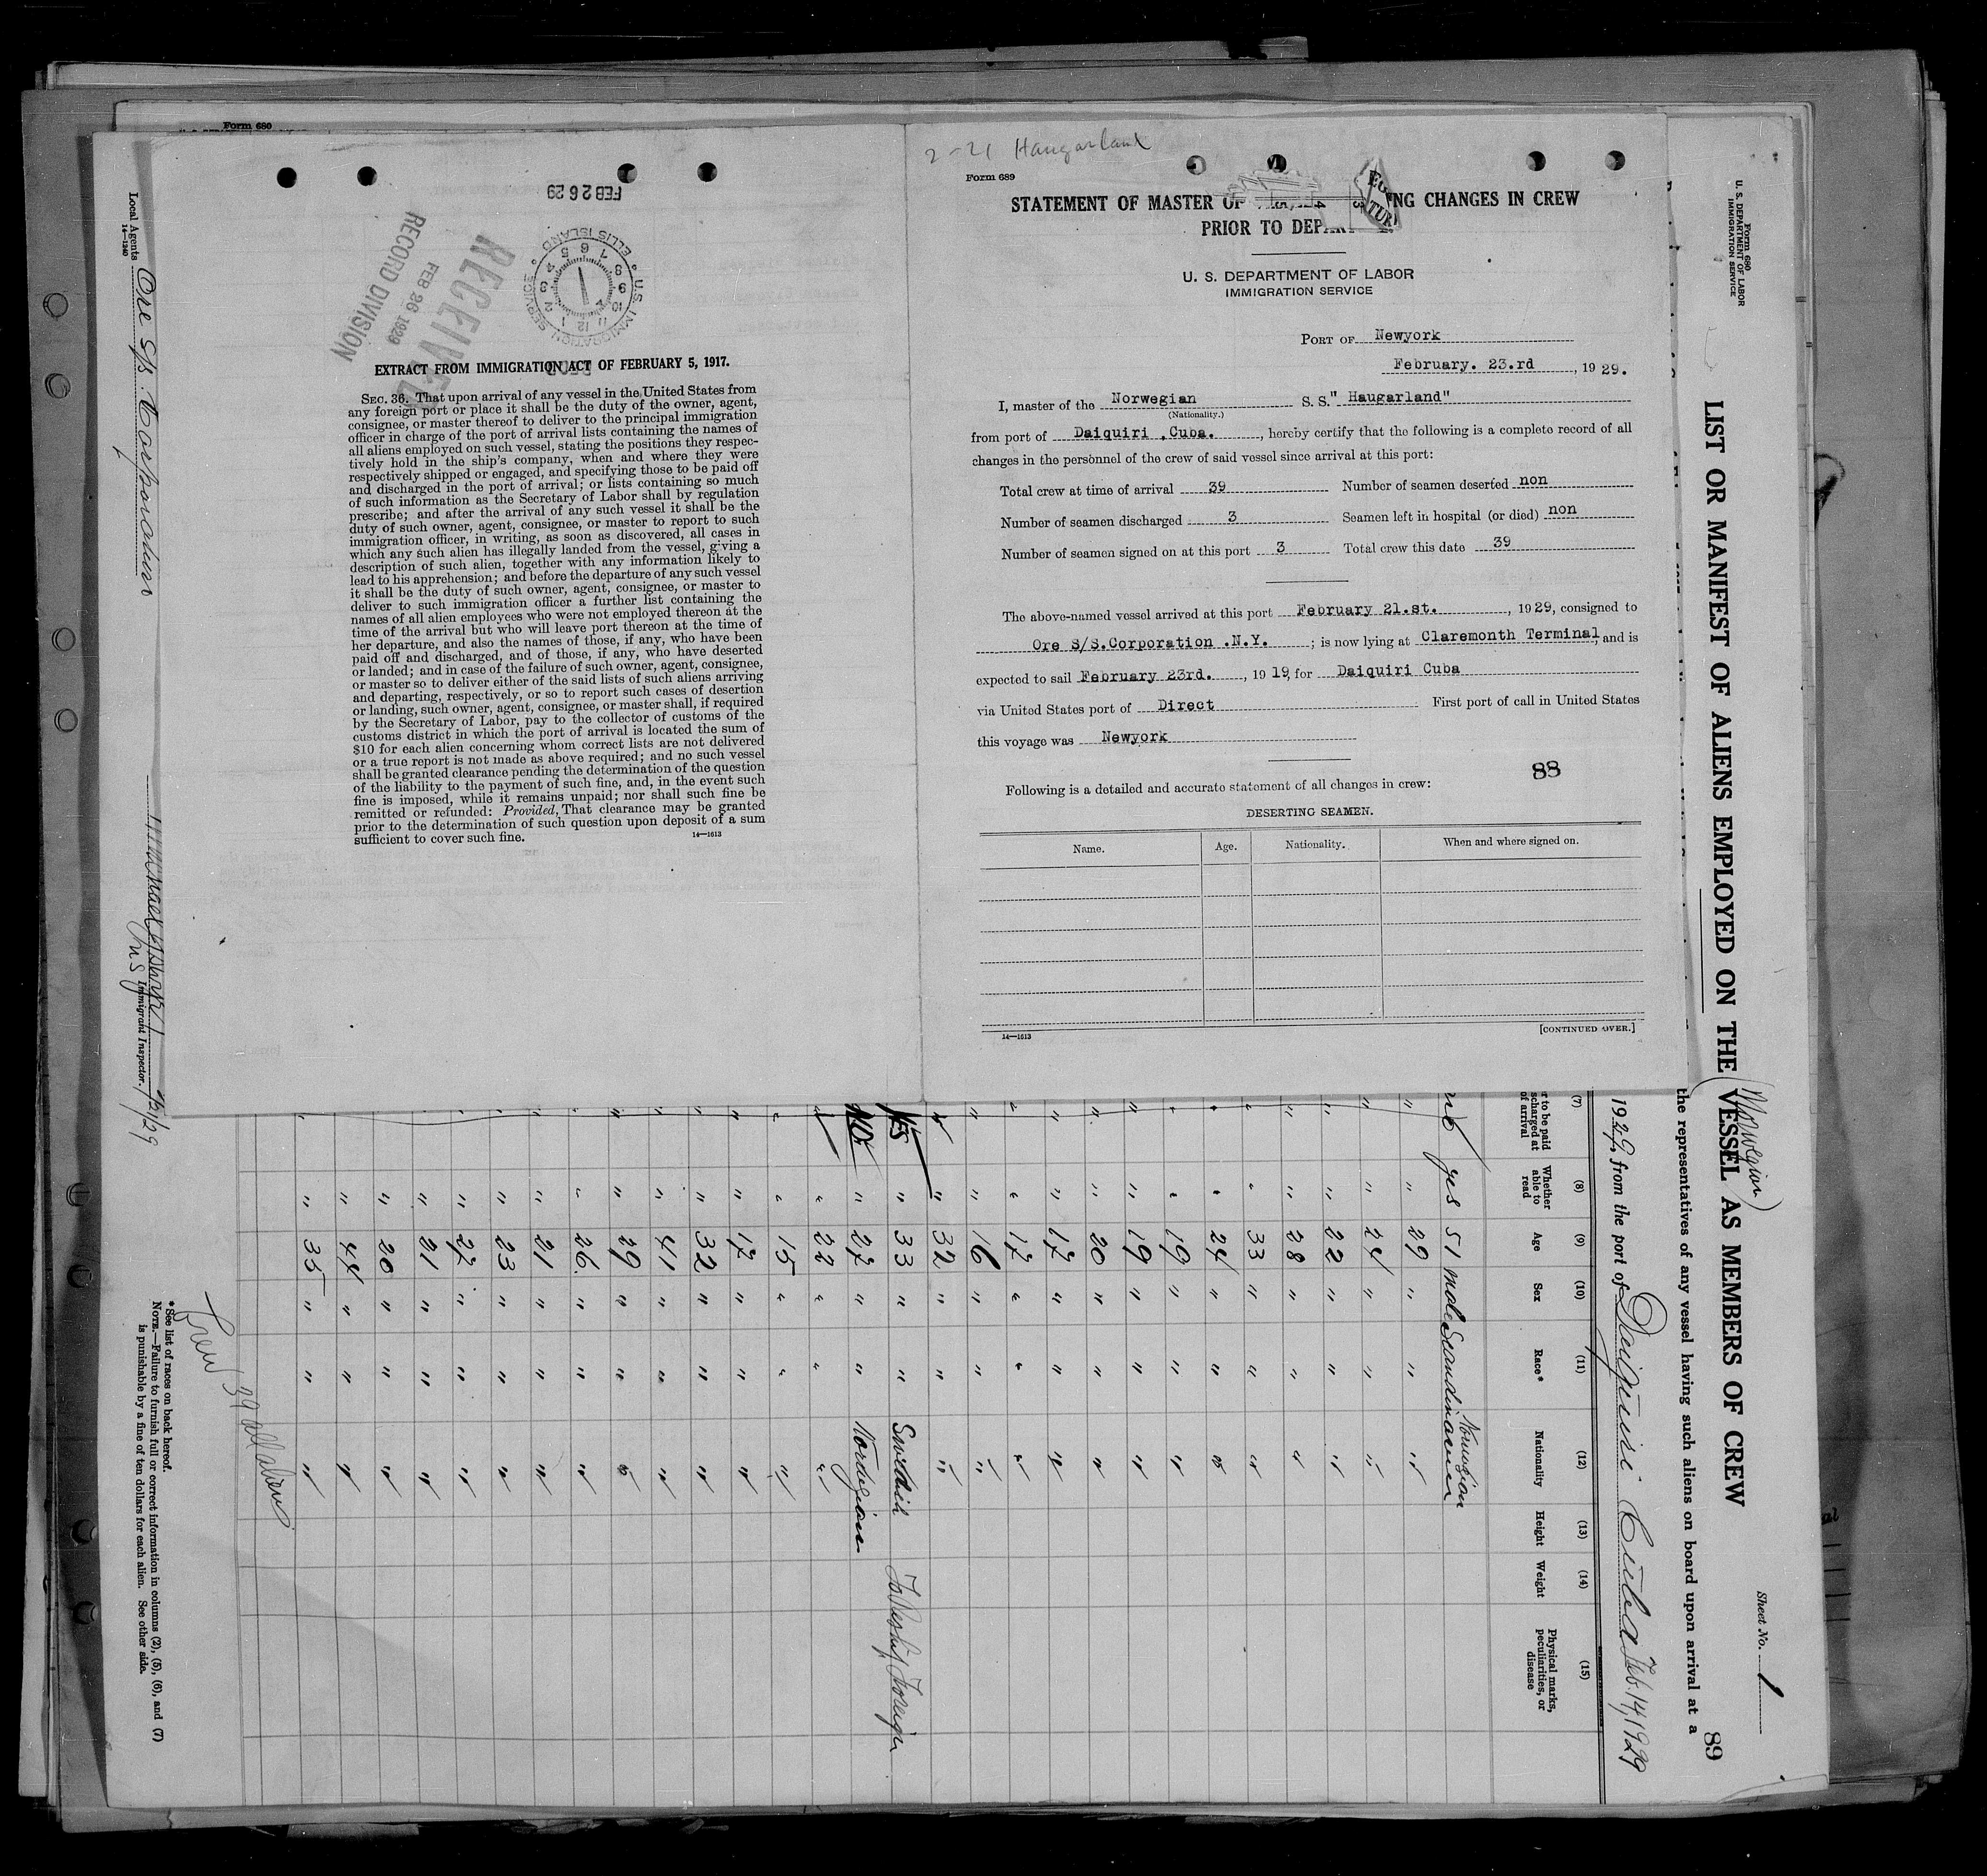 Form 680
FEB 26 29
U.S. IMMIGRATION SERVICE
ELLIS ISLAND
RECEIVED
FEB 26 1929
RECORD DIVISION
EXTRACT FROM IMMIGRATION ACT OF FEBRUARY 5, 1917.
SEC. 36. That upon arrival of any vessel in the United States from
any foreign port or place it shall be the duty of the owner, agent,
consignee, or master thereof to deliver to the principal immigration
officer in charge of the port of arrival lists containing the names of
all aliens employed on such vessel, stating the positions they respec-
tively hold in the ship's company, when and where they were
respectively shipped or engaged, and specifying those to be paid off
and discharged in the port of arrival; or lists containing so much
of such information as the Secretary of Labor shall by regulation
prescribe; and after the arrival of any such vessel it shall be the
duty of such owner, agent, consignee, or master to report to such
immigration officer, in writing, as soon as discovered, all cases in
which any such alien has illegally landed from the vessel, giving a
description of such alien, together with any information likely to
lead to his apprehension; and before the departure of any such vessel
it shall be the duty of such owner, agent, consignee, or master to
deliver to such immigration officer a further list containing the
names of all alien employees who were not employed thereon at the
time of the arrival but who will leave port thereon at the time of
her departure, and also the names of those, if any, who have been
paid off and discharged, and of those, if any, who have deserted
or landed; and in case of the failure of such owner, agent, consignee,
or master so to deliver either of the said lists of such aliens arriving
and departing, respectively, or so to report such cases of desertion
or landing, such owner, agent, consignee, or master shall, if required
by the Secretary of Labor, pay to the collector of customs of the
customs district in which the port of arrival is located the sum of
$10 for each alien concerning whom correct lists are not delivered
or a true report is not made as above required; and no such vessel
shall be granted clearance pending the determination of the question
of the liability to the payment of such fine, and, in the event such
fine is imposed, while it remains unpaid; nor shall such fine be
remitted or refunded: Provided, That clearance may be granted
prior to the determination of such question upon deposit of a sum
sufficient to cover such fine.
14—1613
2-21 Haugarland
Form 689
STATEMENT OF MASTER OF NG CHANGES IN CREW
PRIOR TO DEPAR
U. S. DEPARTMENT OF LABOR
IMMIGRATION SERVICE
PORT OF Newyork
February. 23.rd, 1929.
I, master of the Norwegian S. S." Haugarland"
(Nationality.)
from port of Daiquiri ,Cuba., hereby certify that the following is a complete record of all
changes in the personnel of the crew of said vessel since arrival at this port:
Total crew at time of arrival 39 Number of seamen deserted non
Number of seamen discharged 3 Seamen left in hospital (or died) non
Number of seamen signed on at this port 3 Total crew this date 39
The above-named vessel arrived at this port February 21.st., 1929, consigned to
Ore S/S.Corporation .N.Y.; is now lying at Claremonth Terminal, and is
expected to sail February 23rd., 19 19, for Daiquiri Cuba
via United States port of Direct First port of call in United States
this voyage was Newyork
88
Following is a detailed and accurate statement of all changes in crew:
DESERTING SEAMEN.
Name. Age. Nationality. When and where signed on.
14—1613
[CONTINUED OVER.]
Form 680
U. S. DEPARTMENT OF LABOR
IMMIGRATION SERVICE
Sheet No. 1
89
LIST OR MANIFEST OF ALIENS EMPLOYED ON THE (Norwegian) VESSEL AS MEMBERS OF CREW
the representatives of any vessel having such aliens on board upon arrival at a
1929, from the port of Daiquiri Cuba Feb. 14, 1929
(7) (8) (9) (10) (11) (12) (13) (14) (15)
r to be paid
scharged at
of arrival
Whether
able to
read
Age
Sex
Race*
Nationality
Height
Weight
Physical marks,
peculiarities, or
disease
no yes 51 male Scandinavien Norwegian
" " 29 " " "
" " 24 " " "
" " 22 " " "
" " 28 " " "
" " 33 " " "
" " 24 " " "
" " 19 " " "
" " 19 " " "
" " 20 " " "
" " 17 " " "
" " 17 " " "
" " 16 " " "
" " 32 " " "
YES " 33 " " Swedish To Reship Foreign
NO " 27 " " Nordegian
" 22 " " "
" " 15 " " "
" " 17 " " "
" " 32 " " "
" " 41 " " "
" " 29 " " "
" " 26 " " "
" " 21 " " "
" " 23 " " "
" " 27 " " "
" " 21 " " "
" " 20 " " "
" " 44 " " "
" " 35 " " "
Crew 39 all aliens
*See list of races on back hereof.
NOTE.—Failure to furnish full or correct information in columns (2), (5), (6), and (7)
is punishable by a fine of ten dollars for each alien. See other side.
Local Agents Ore S/s. Corporation
14—1240
Immigrant Inspector.
2/21/29